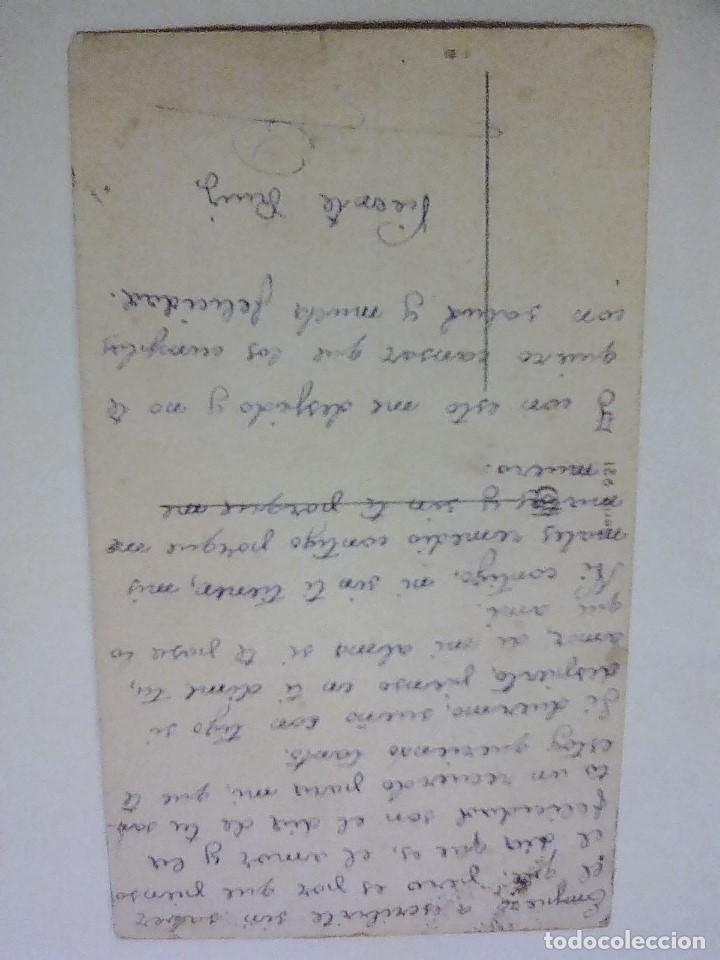 Empiezo a escribirte sin saber
el que, pero es por que pienso
el dia que es, el amor y la
felicidad son el dia de tu san
to un recuerdo para mi, que te
estoy queriendo tanto.
Si duermo, sueño con tigo si
despierto, pienso en ti dime tu,
amor de mi alma si te pasa lo
qui ami.
Ni contigo, ni sin ti tienen, mis
males remedio contigo porque me
y sin ti porque me
muero.
Y con esto me despido y no te
quiero cansar que los cumplas
con salud y mucha felicidad.
Vicente Ruiz
todocoleccion